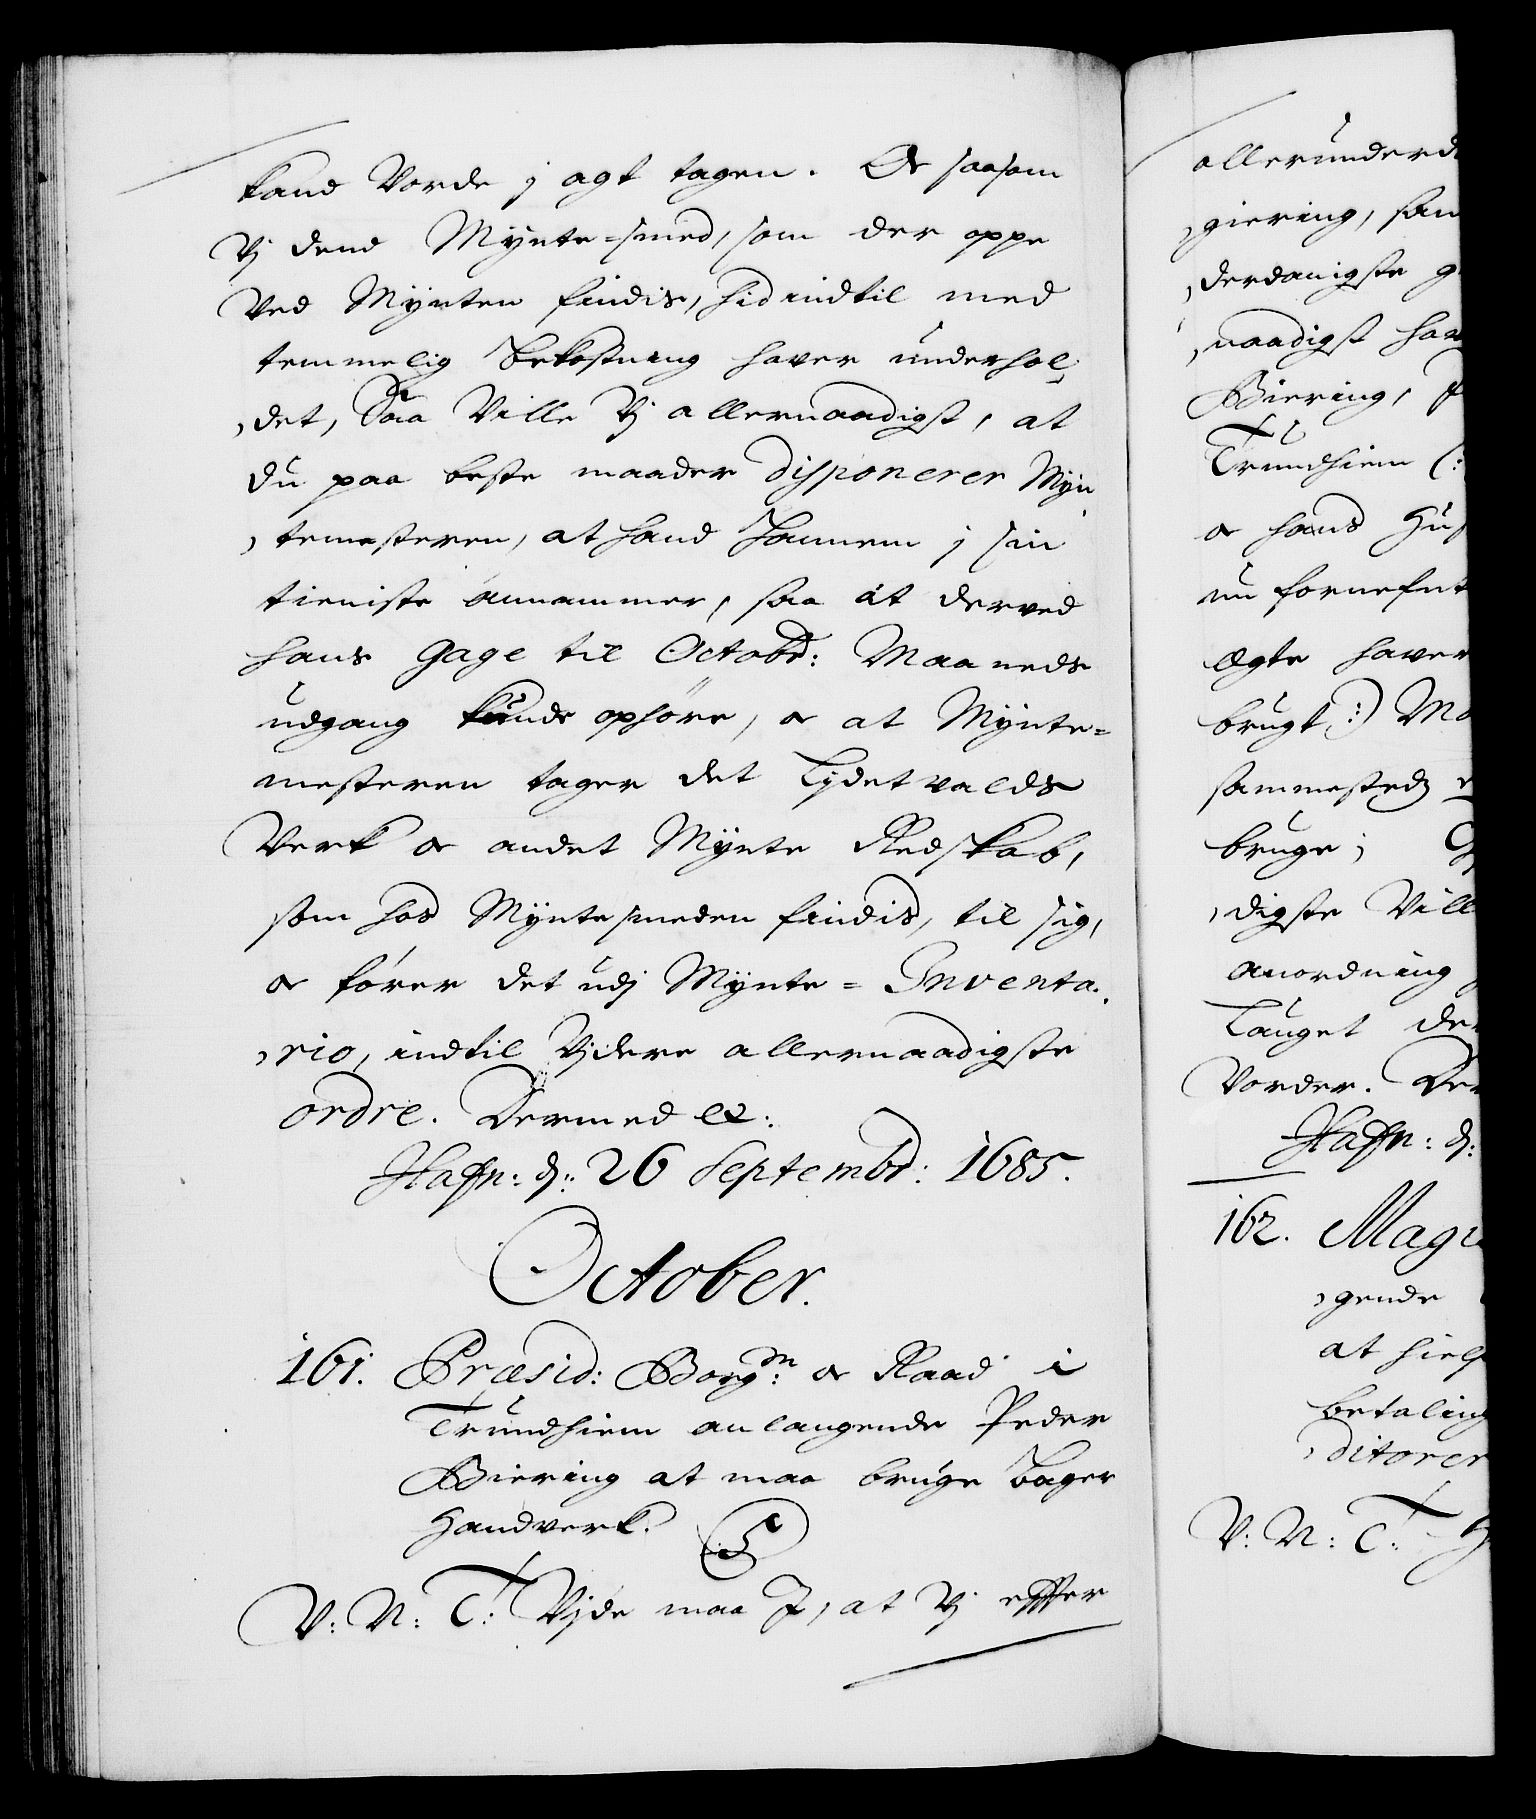 kand Vorde j agt tagen. Oc saasom
Vj dend Mynte-smed, som der oppe
Ved Mynten findis, hid indtil med
temmelig bekostning haver underhol,
,det, Saa Ville Vj allernaadigst, at
du paa beste maader disponerer Myn,
,temesteren, at hand hannem j sin
tieniste annammer, saa at derved
hans Gage til Octobr: Maaneds
udgang kunde ophøre, oc at Mynte=
mesteren tager det
Verk oc andet Mynte Redskab,
som hos Myntesmeden findis, til sig,
oc fører det udj Mynte = Inventa,
,rio, indtil Vjdere allernaadigste
ordre. Dermed etc:
Hafn: d: 26 Septembr: 1685.
October.
161. Præsid: Borgm: oc Raad i
Trundhiem anlangende Peder
Biering at maa bruge bager
Handverk.
V: N: T: Vjde maa J, at Vj effter
allerunderd
,giering, san
,derdanigste g
,naadigst hav
Biering, P
Trundhiem (:
oc hans Hus
nu fornefnt
ægte haver
brugt :) Ma
sammesteds
bruge;
,digste Vill
anordning
Lauget der
Vorder. Der
Hafn: d:
162. Magi
,gende
at hielp
betaling
,ditorer
V: N: T: